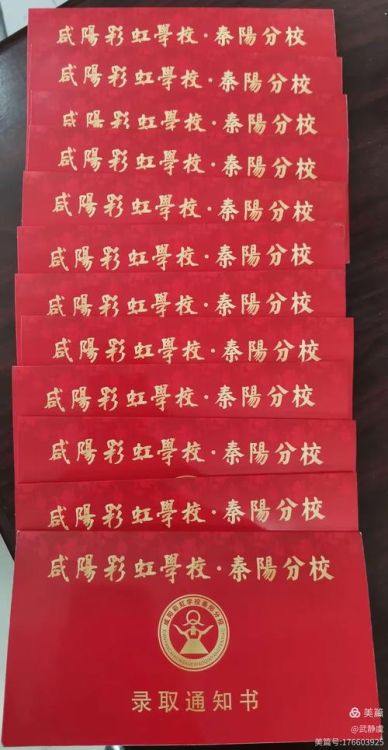 咸陽彩虹學校·秦陽分校
咸陽彩虹學校·秦陽分校
咸陽彩虹學校·秦陽分校
咸陽彩虹學校·秦陽分校
咸陽彩虹學校·秦陽分校
咸陽彩虹學校·秦陽分校
咸陽彩虹學校·秦陽分校
咸陽彩虹學校·秦陽分校
咸陽彩虹學校·秦陽分校
咸陽彩虹學校·秦陽分校
咸陽彩虹學校·秦陽分校
咸陽彩虹學校·秦陽分校
咸阳彩虹学校秦阳分校
录取通知书
美篇
@武静虞
美篇号:176603925